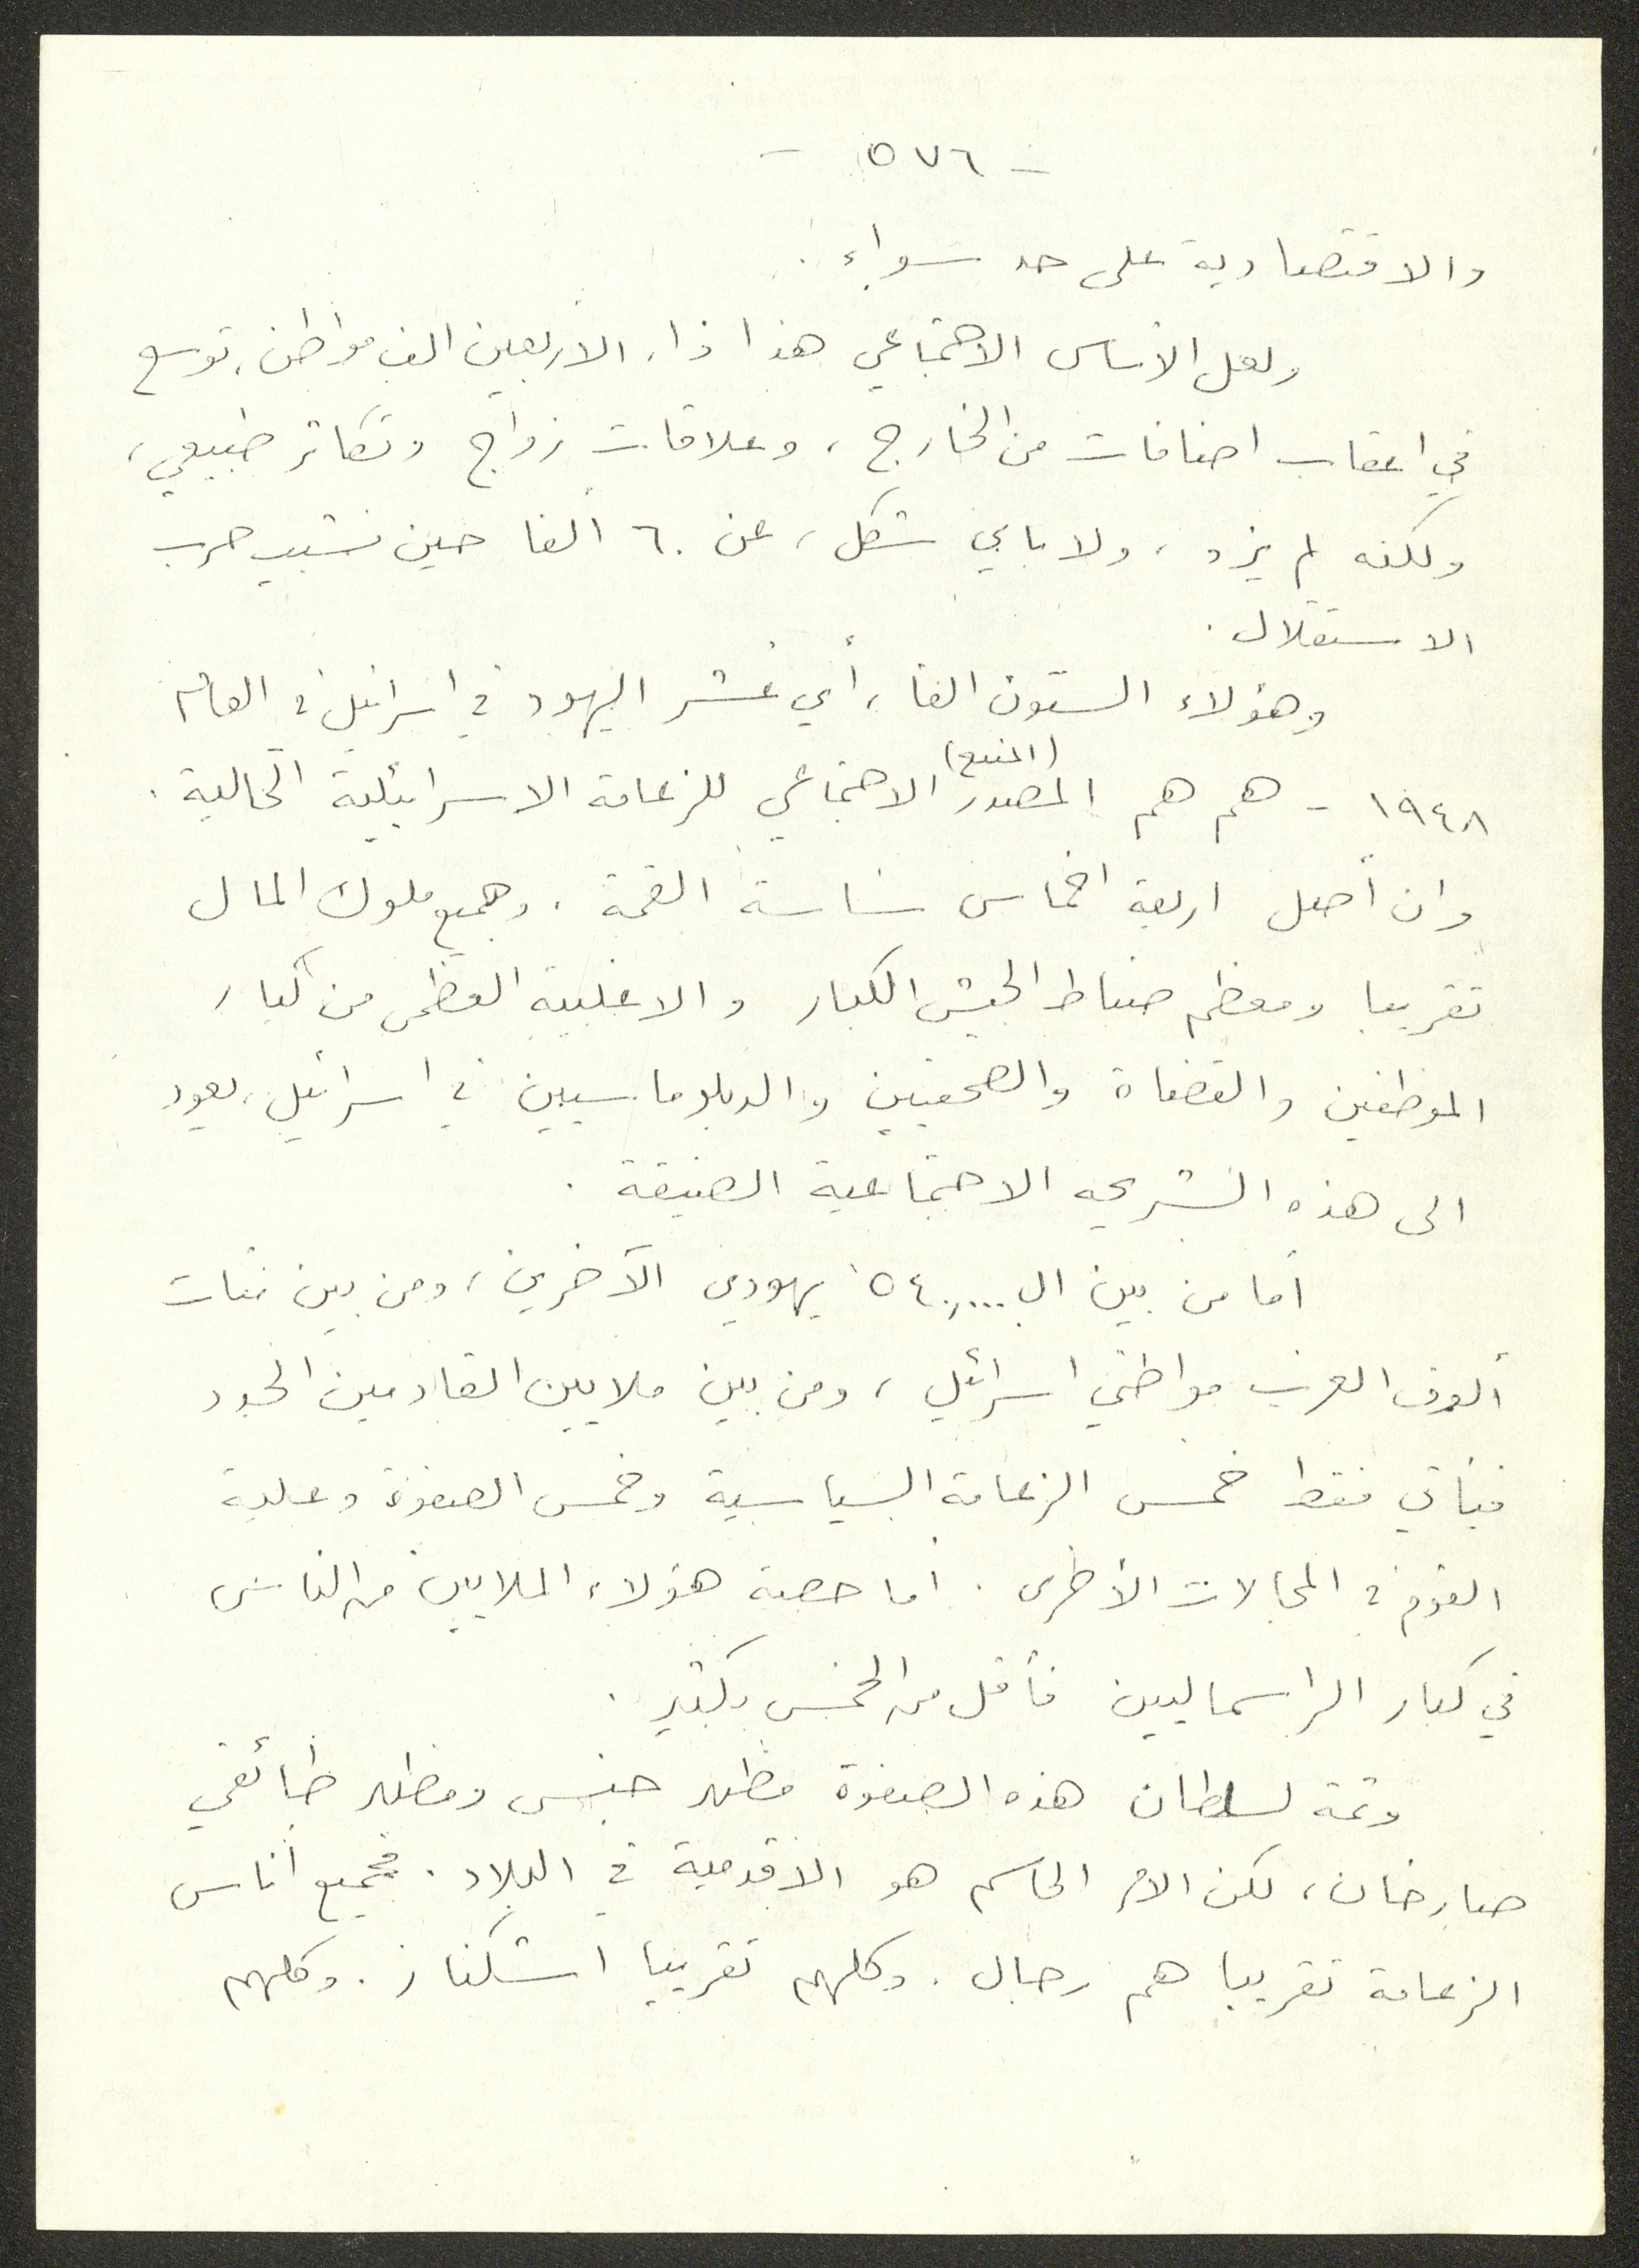 - ٥٧٦ -
والاقتصادية على حد سواء.
ولعل الاساس الاجتماعي هذا ذا، الاربعين الف مواطن، توسع
في اعقاب اضافات من الخارج، وعلاقات زواج وتكاثر طبيعي،
ولكنه لم يزد، ولا باي شكل، عن ٦٠ ألفا حين نشبت حرب
الاستقلال.
وهؤلاء الستون الفا، أي عشر اليهود في اسرائيل في العام
(المنبع)
١٩٤٨ - هم هم المصدر الاجتماعي للزعامة الاسرائيلية الحالية.
وان أصل اربعة اخماس ساسة القمة، وجميع ملوك المال
تقريبا ومعظم ضباط الجيش الكبار والاغلبية العظمى من كبار
الموظفين والقضاة والصحفيين والدبلوماسيين في اسرائيل، يعود
الى هذه الشريحه الاجتماعية الضيقة.
أما من بين ال ٥٤٠,٠٠٠ يهودي الآخرين، ومن بين مئات
ألوف العرب مواطني اسرائيل، ومن بين ملايين القادمين الجدد
فيأتي فقط خمس الزعامة السياسية وخمس الصفوة وعلية
القوم في المجالات الأخرى. أما حصة هؤلاء الملايين من الناس
في كبار الراسماليين فأقل من الخمس بكثير.
وثمة لسلطان هذه الصفوة مظهر جنسي ومظهر طائفي
صارخان، لكن الأمر الحاسم هو الاقدمية في البلاد. فجميع أناس
الزعامة تقريبا هم رجال. وكلهم تقريبا اشكناز. وكلهم